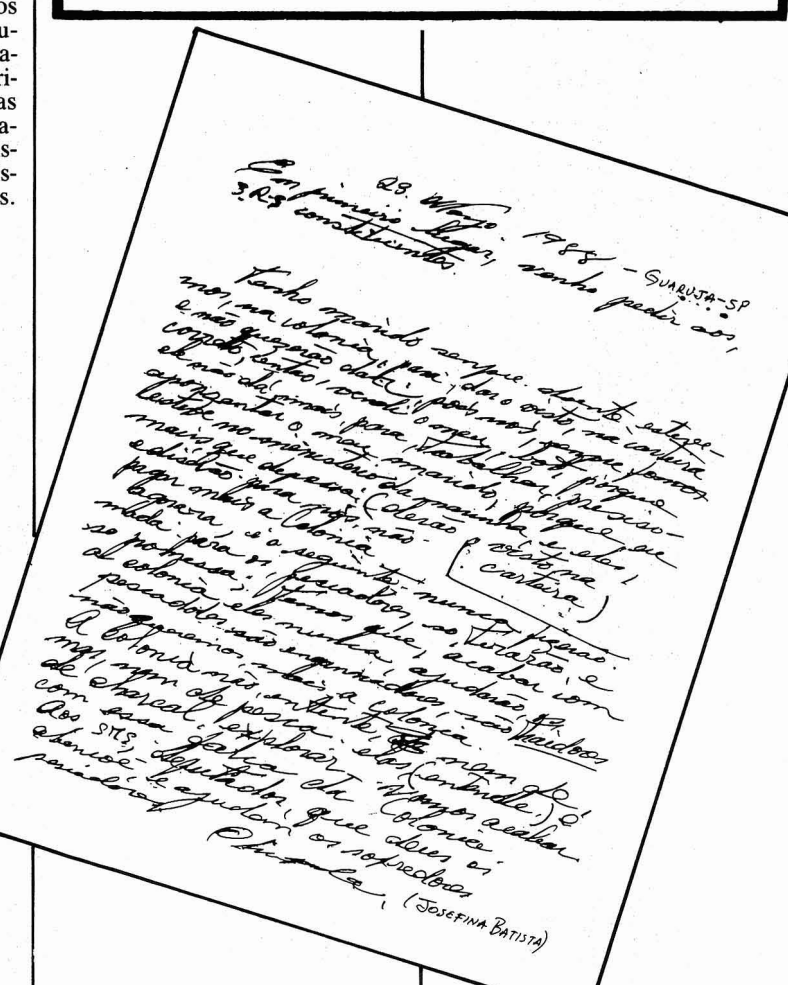 os
u-
a-
ri-
as
a-
s-
s-
s.
28. Março. 1988 - GUARUJA-SP
Em primeiro lugar, venho pedir aos,
S.R.S constituintes.
Tenho marido sempre doente, esteve-
mos, na colonia, para, dar o visto, na carteira
e não quizerão dat, pois nos, fomos
então, vendi o meu, bot, porque
ele não dá, mais para, trabalhar, preciso-
aposentar o meu marido, porque eu
estive no menisterio da marinha e eles,
mais que depressa, (derão o visto na
carteira)
e diserão para nós não
pagar mais a Colonia
agora, é o seguinte, nunca
nada para os, pescadores, so tirarão, e
se Temos que, acabar com
al colonia eles nunca, ajudarão, os
pescadores são enganadores, são traidoos
não queremos, mais, a colonia.
A Colonia não, entende, nem de,
mar, nem de pesca, elas (entende,) é
de charcal, explorar. Vamos acabar
com essa da Colonia
Aos SRS, Deputados, que deus os
abençoê- e ajudem os sofredores
pescadores
(JOSEFINA BATISTA)